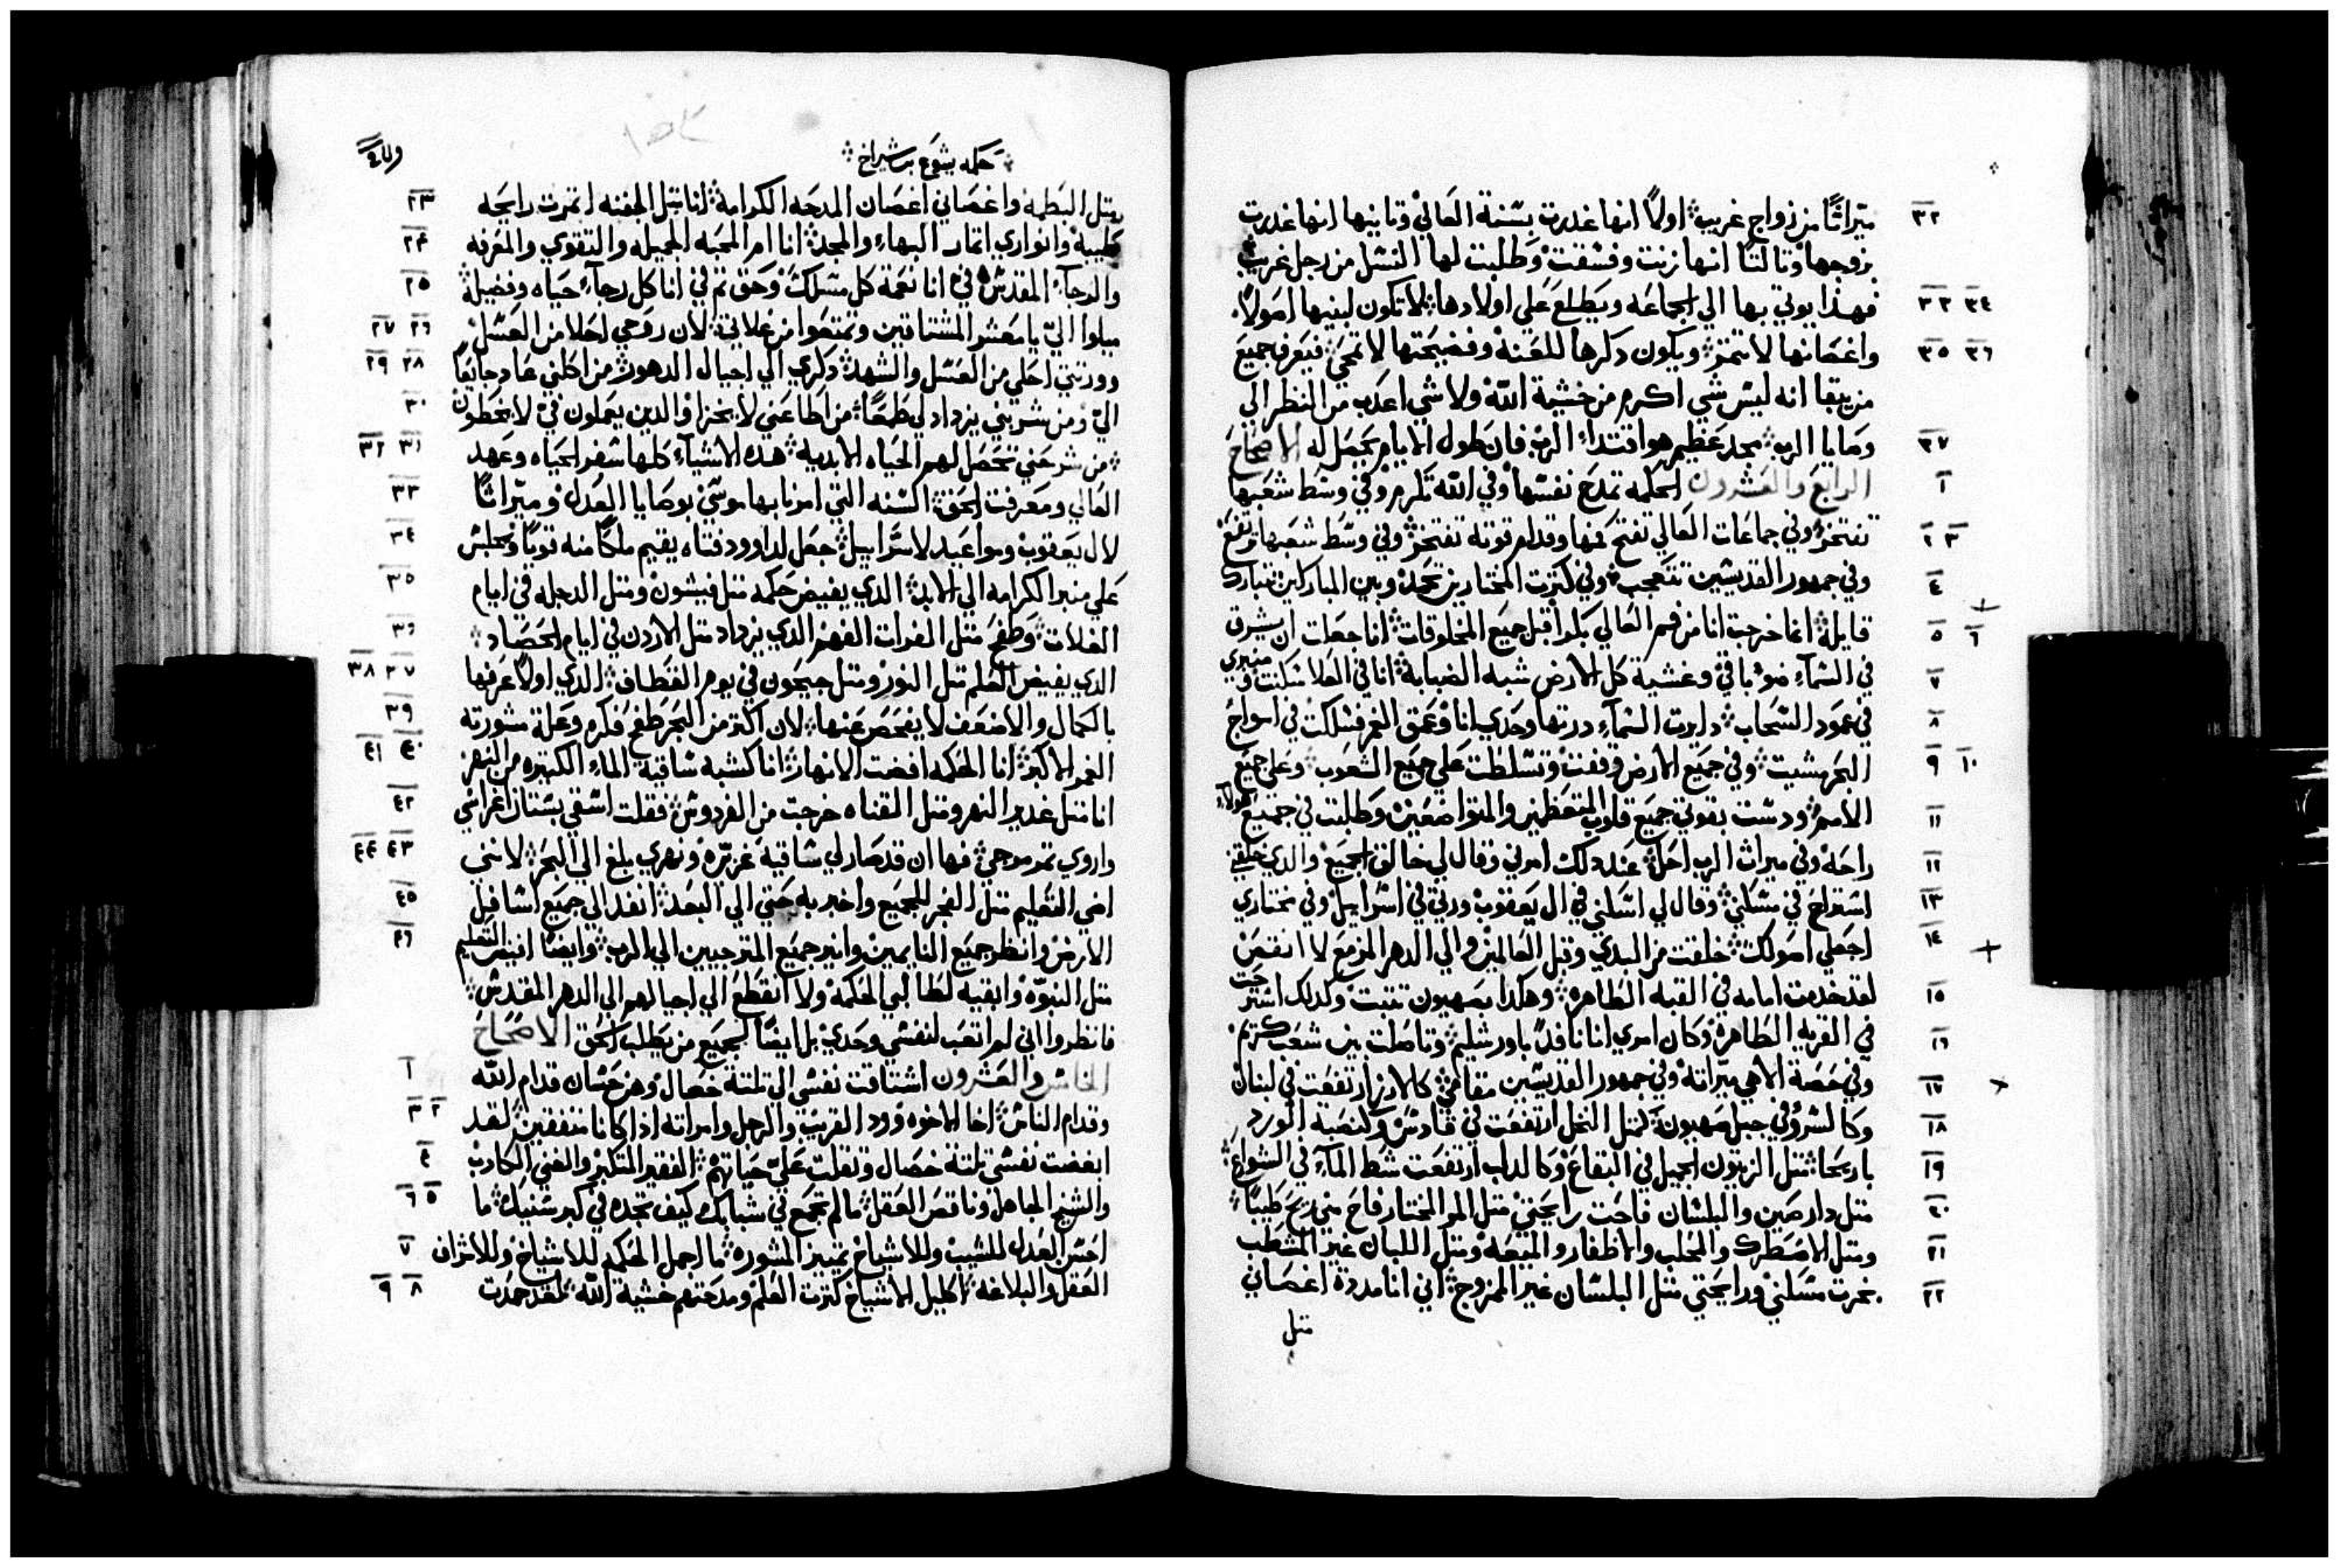 ميراثًا من زواج غريب اولاً انها غدرت بسنة العالي وثانيها انها غدرت ٣٢
بزوجها وثالثًا انها زنت وفسقت وطلبت لها النسل من رجل غريب
فهذا يوتي بها الي الجماعه ويطلع علي اولادها لا تكون لبنيها اصولاً ٣٣ ٣٤
واغصانها لا تتمر ويكون دكرها للعنة وفضيحتها لا تمحي فيعرف جميع ٣٥ ٣٦
من يبقا انه ليس شي اكرم من خشية الله ولا شي اعدب من النظر الي
وصايا الرب مجد عظيم هو اقتداء الرب فان طول الايام يحصل له الاصحاح ٣٧
الرابع والعشرون الحكمه تمدح نفسها وفي الله تكرم وفي وسط شعبها ١
تفتخر وفي جماعات العالي تفتح فمها وقدام قوته تفتخر وفي وسط شعبها ترتفع ٢ ٣
وفي جمهور القديسين تتعجب وفي كترت المختارين تحمد وبين المباركين تتبارك ٤
قايلة انما خرجت انا من فم العالي بكرا قبل جميع المخلوقات انا جعلت ان يشرق ٥ ٦
في السماء ضوء باقي وغشية كل الارض شبه الضبابة انا في العلا سكنت ومنبري ٧
في عمود السحاب دايرت السماء درتها وحدي انا وعمق الغمر فسلكت في امواج ٨
البحر مشيت وفي جميع الارض وقفت وتسلطت علي جميع الشعوب وعلي جميع ٩ ١٠
الامم ودست بقوتي جميع قلوب المتعظمين والمتواضعين وطلبت في جميع هولاء ١١
راحه وفي ميراث الرب احل عند دلك امرني وقال لي خالق الجميع والدي خلقني ١٢
استراح في مسكني وقال لي اسكني في ال يعقوب ورتي في اسراييل وفي مختاري ١٣
اجعلي اصولك خلقت من البدي وقبل العالمين والي الدهر المزمع لا انقص ١٤
لقد خدمت امامه في القبه الطاهره وهكدا بصهيون تتبت وكدلك استرحت ١٥
في القريه الطاهرة وكان امري انا نافدًا باورشليم وتاصلت بين شعب مكرم ١٦
وفي حصة الاهي ميراته وفي جمهور القديسين مقامي كالارز ارتفعت في لبنان ١٧
وكالسرو في جبل صهيون كمتل النخل ارتفعت في قادس وكنصبة الورد ١٨
باريحا متل الزيتون الجميل في البقاع وكالدلب ارتفعت شط الماء في الشوارع ١٩
متل دارصين والبلسان فاحت رايحتي متل المر المختار فاح مني ريح طيبًا ٢٠
ومتل الاصطرك والمحلب والاظفار والميعه ومتل اللبان غير المشطب ٢١
بخرت مسكني ورايحتي متل البلسان غير الممزوج اني انا مددة اغصاني ٢٢
متل
حكمه يشوع بن شيراخ
متل البطمه واغصاني اغصان المدحه الكرامة انا متل الجفنه اتمرت رايحه ٢٣
طيبة وانواري اتمار البهاء والمجد انا ام المحبه الجميله والتقوي والمعرفه ٢٤
والرجاء المقدس في انا نعمة كل مسلك وحق تم في انا كل رجاء حياه وفضيلة ٢٥
ميلوا اليّ يا معشر المشتاقين وتمتعوا من غلاتي لان روحي احلا من العسل ٢٦ ٢٧
وورتتي احلي من العسل والشهد دكري الي اجيال الدهور من اكلني عاد جايعًا ٢٨ ٢٩
اليّ ومن شربني يزداد لي طمعًا من اطاعني لا يخزا والدين يعملون فيّ لا يخطون ٣٠
من شرحني تحصل لهم الحياه الابدية هده الاشياء كلها سفر الحياه وعهد ٣١ ٣٢
العالي ومعرفت الحق السنه التي امرنا بها موسي بوصايا العدل وميراثًا ٣٣
لال يعقوب ومواعيد لاسراييل جعل لداوود فتاه يقيم ملكًا منه قويًا ويجلس ٣٤
علي منبر الكرامه الي الابد الدي يفيض حكمه متل فيشون ومتل الدجله في ايام ٣٥
الغلات وطفح متل الفرات الفهم الدي يزداد متل الاردن في ايام الحصاد ٣٦
الدي يفيض العلم متل النور ومتل جيحون في يوم القطاف الدي اولاً عرفها ٣٧ ٣٨
بالكمال والاضعف لا يفحص عنها لان اكتر من البحر طفح فكرم وعلة مشورته ٣٩
الغمر الاكبر انا الحكمه افضت الانهار انا كشبه ساقية الماء الكتيره من النهر ٤٠ ٤١
انا متل غدير النهر ومتل القناه خرجت من الفردوس فقلت اسقي بستان اغراسي ٤٢
واروي تمر مرجي فها ان قد صار لي ساقية غزيره ونهري بلغ الي البحر لانني ٤٣ ٤٤
اضي التعليم متل الفجر للجميع واخبر به حتي الي البعد انفد الي جميع اسافل ٤٥
الارض وانظر جميع النايمين وانير جميع المترجيين الي الرب وايضًا افيض التعليم ٤٦
متل النبوّه وابقيه لطالبي الحكمه ولا انقطع الي اجيالهم الي الدهر المقدس
فانظروا اني لم اتعب لنفسي وحدي بل ايضًا لجميع من يطلب الحق الاصحاح
الخامس والعشرون اشتاقت نفسي الي تلتة خصال وهن حسان قدام الله ١
وقدام الناس اخا الاخوه وود القريب والرجل وامراته اذا كانا متفقين لقد ٢ ٣
ابغضت نفسي تلتة خصال وتقلت عليّ حياتهم الفقير المتكبر والغني الكادب ٤
والشيخ الجاهل وناقص العقل ما لم تجمع في شبابك كيف تجده في كبر سنيك ما ٥ ٦
احسن العدل للشيب وللاشياخ تمييز المشوره ما اجمل الحكمه للاشياخ وللاشراف ٧
العقل والبلاغه اكليل الاشياخ كترت العلم ومدحتهم خشية الله لقد حمدت ٨ ٩